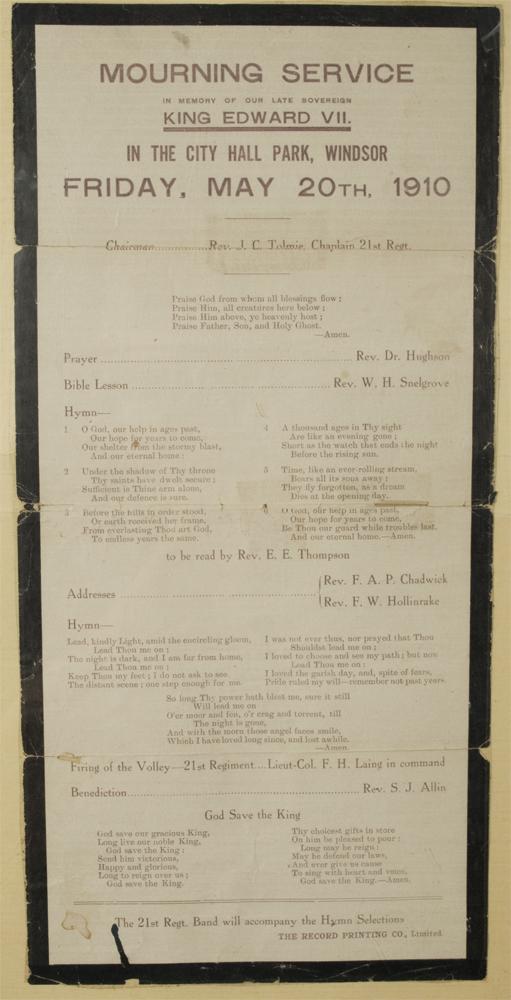 MOURNING SERVICE
IN MEMORY OF OUR LATE SOVEREIGN
KING EDWARD VII.
IN THE CITY HALL PARK, WINDSOR
FRIDAY, MAY 20TH, 1910
Chairman................Rev. J. C. Tolmie, Chaplain 21st Regt.
Praise God from whom all blessings flow;
Praise Him, all creatures here below;
Praise Him above, ye heavenly host;
Praise Father, Son, and Holy Ghost.
—Amen.
Prayer ................ Rev. Dr. Hughson
Bible Lesson ................ Rev. W. H. Snelgrove
Hymn—
1 O God, our help in ages past,
Our hope for years to come,
Our shelter from the stormy blast,
And our eternal home:
2 Under the shadow of Thy throne
Thy saints have dwelt secure;
Sufficient is Thine arm alone,
And our defence is sure.
3 Before the hills in order stood,
Or earth received her frame,
From everlasting Thou art God,
To endless years the same.
4 A thousand ages in Thy sight
Are like an evening gone;
Short as the watch that ends the night
Before the rising sun.
5 Time, like an ever-rolling stream,
Bears all its sons away;
They fly forgotten, as a dream
Dies at the opening day.
6 O God, our help in ages past,
Our hope for years to come,
Be Thou our guard while troubles last,
And our eternal home.—Amen.
to be read by Rev. E. E. Thompson
Addresses ................ Rev. F. A. P. Chadwick
Rev. F. W. Hollinrake
Hymn—
Lead, kindly Light, amid the encircling gloom,
Lead Thou me on;
The night is dark, and I am far from home,
Lead Thou me on;
Keep Thou my feet; I do not ask to see
The distant scene; one step enough for me.
I was not ever thus, nor prayed that Thou
Shouldst lead me on;
I loved to choose and see my path; but now
Lead Thou me on:
I loved the garish day, and, spite of fears,
Pride ruled my will—remember not past years.
So long Thy power hath blest me, sure it still
Will lead me on
O'er moor and fen, o'er crag and torrent, till
The night is gone,
And with the morn those angel faces smile,
Which I have loved long since, and lost awhile.
—Amen.
Firing of the Volley—21st Regiment....Lieut-Col. F. H. Laing in command
Benediction................Rev. S. J. Allin
God Save the King
God save our gracious King,
Long live our noble King,
God save the King:
Send him victorious,
Happy and glorious,
Long to reign over us;
God save the King.
Thy choicest gifts in store
On him be pleased to pour;
Long may he reign;
May he defend our laws,
And ever give us cause
To sing with heart and voice,
God save the King.—Amen.
The 21st Regt. Band will accompany the Hymn Selections
THE RECORD PRINTING CO., Limited